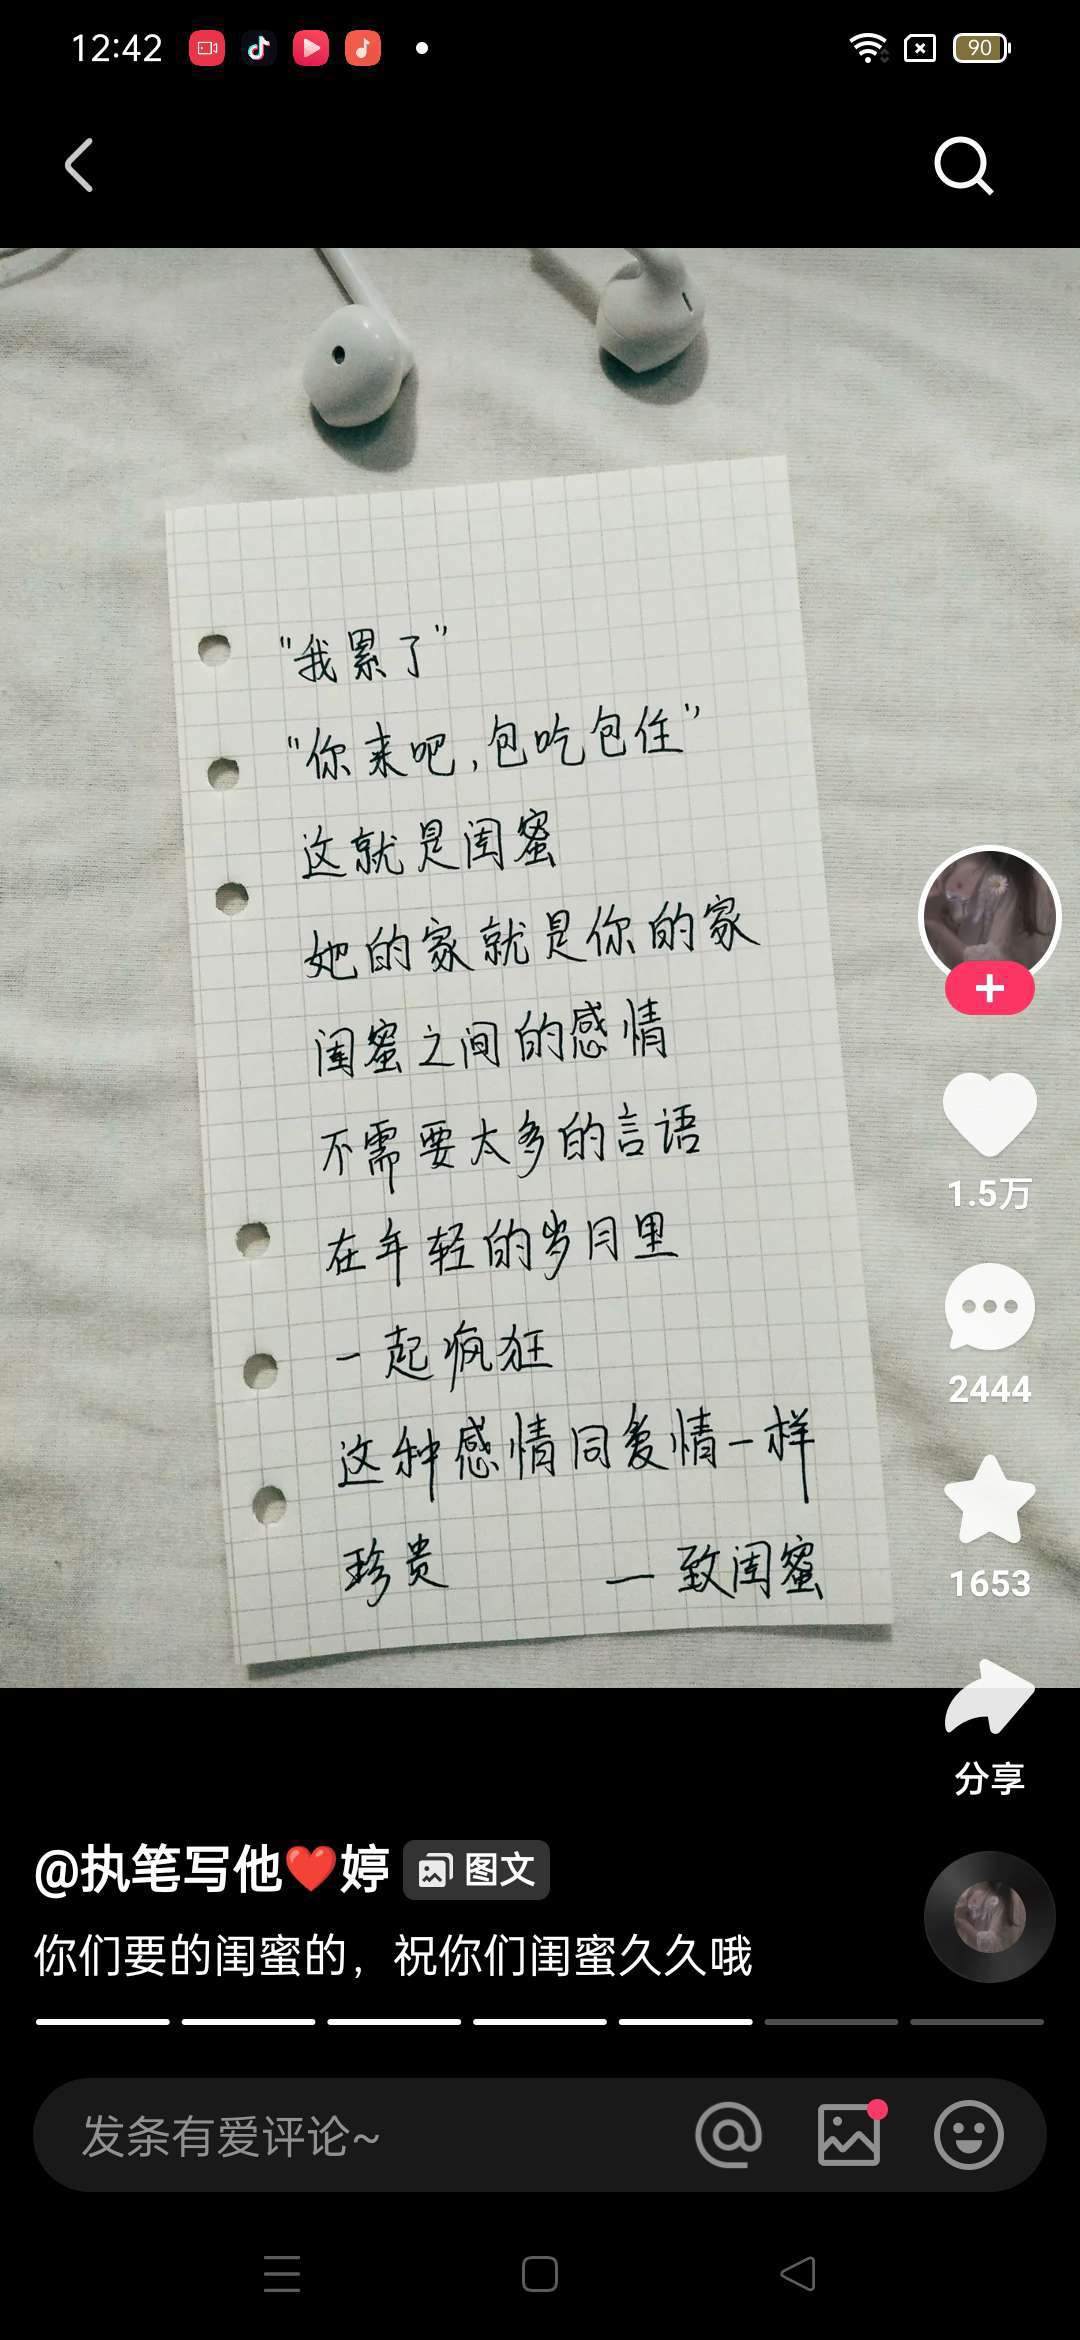 12:42
90
"我累了"
"你来吧,包吃包住"
这就是闺蜜
她的家就是你的家
闺蜜之间的感情
不需要太多的言语
在年轻的岁月里
一起疯狂
这种感情同爱情一样
珍贵 —致闺蜜
1.5万
2444
1653
分享
@执笔写他❤️婷 图文
你们要的闺蜜的，祝你们闺蜜久久哦
发条有爱评论~